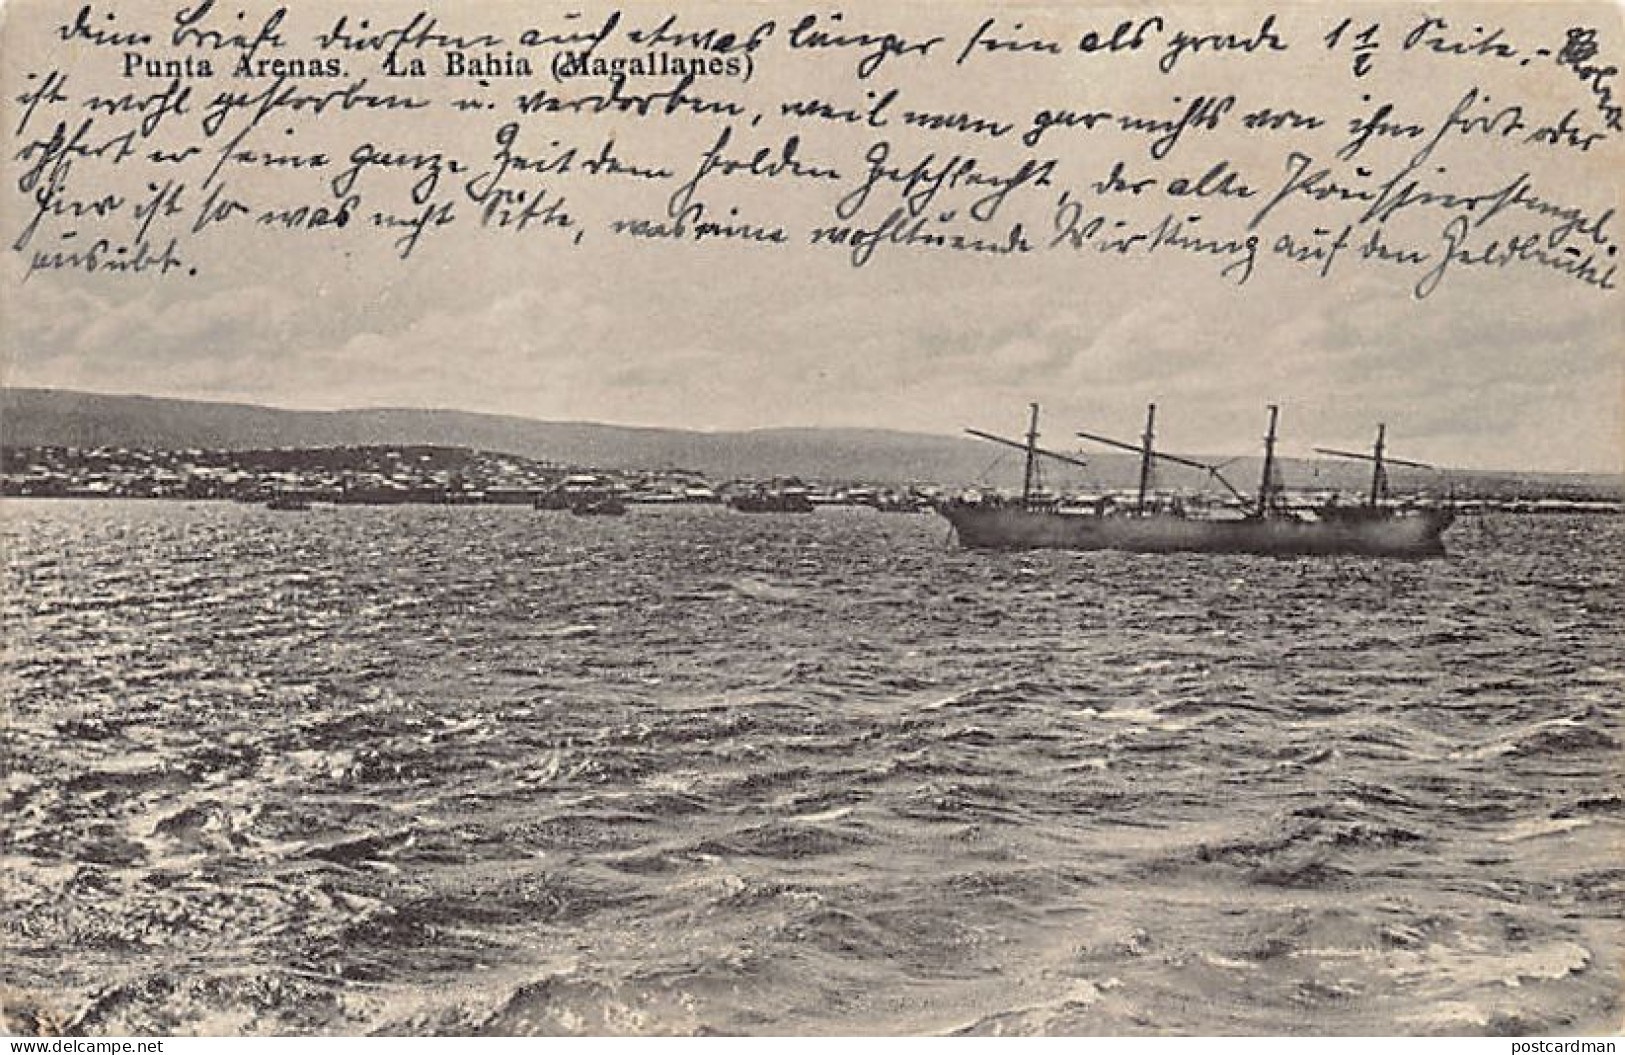 deine Briefe dürften auch etwas länger sein als grade 1 1/2 Seite. - Robert
Punta Arenas. La Bahia (Magallanes)
ist wohl gestorben u. verdorben, weil man gar nichts von ihm hört oder
opfert er seine ganze Zeit dem holden Geschlecht, der alte Preussierstengel.
hier ist so was nicht Sitte, was eine wohltuende Wirkung auf den Geldbeutel
ausübt.
postcardman